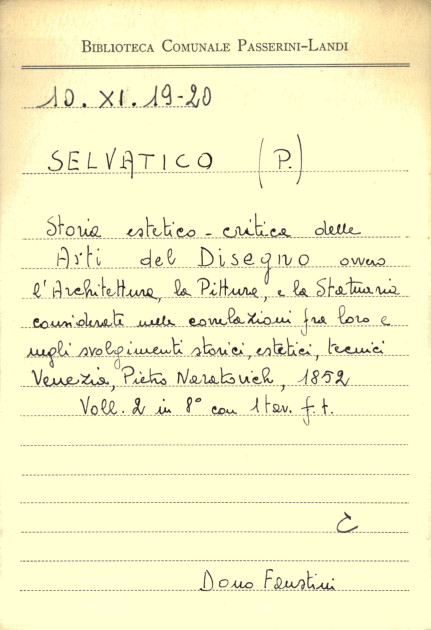 BIBLIOTECA COMUNALE PASSERINI-LANDI
10. XI. 19-20
SELVATICO (P.)
Storia estetico-critica delle
Arti del Disegno ovvero
l'Architettura, la Pittura, e la Statuaria
considerate nelle correlazioni fra loro e
negli svolgimenti storici, estetici, tecnici
Venezia, Pietro Naratovich, 1852
Voll. 2 in 8° con 1 tav. f.t.
Dono Faustini